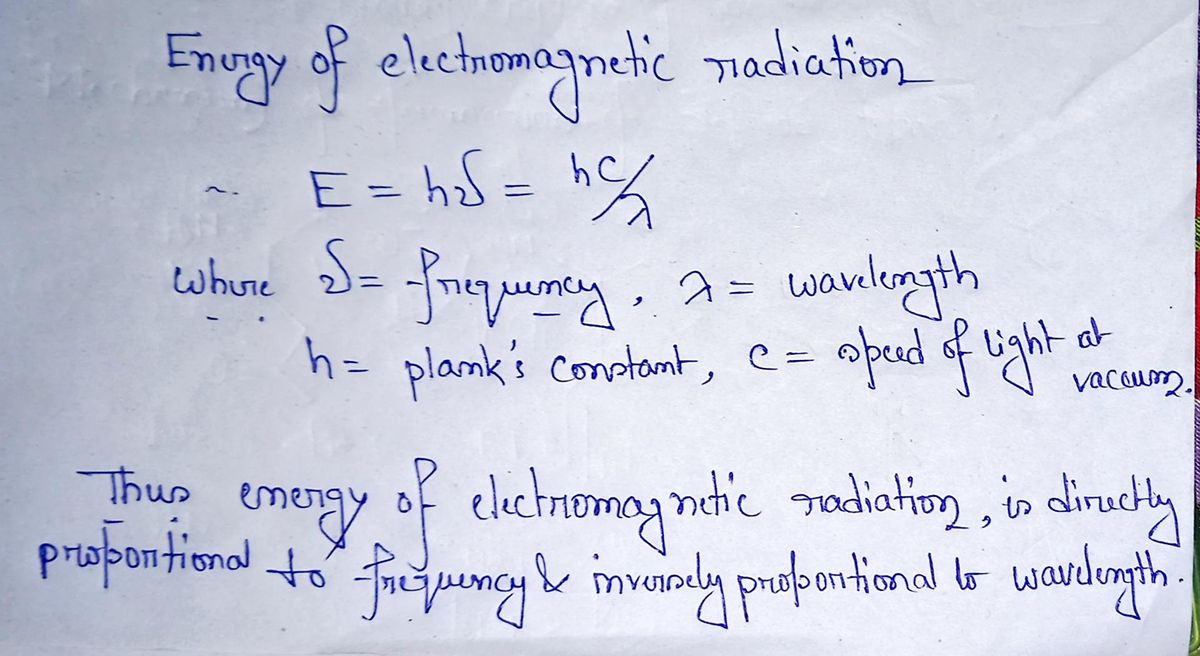 Energy of electromagnetic radiation
E = hν = hc/λ
where ν = frequency, λ = wavelength
h = plank's constant, c = speed of light at vaccum.
Thus energy of electromagnetic radiation, is directly
proportional to frequency & inversely proportional to wavelength.